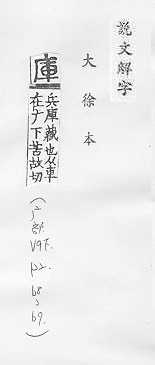 説文解字
大徐本
庫
兵庫藏也从車
在广下苦故切
(广部
V9下.
p22.
b8
b9.)